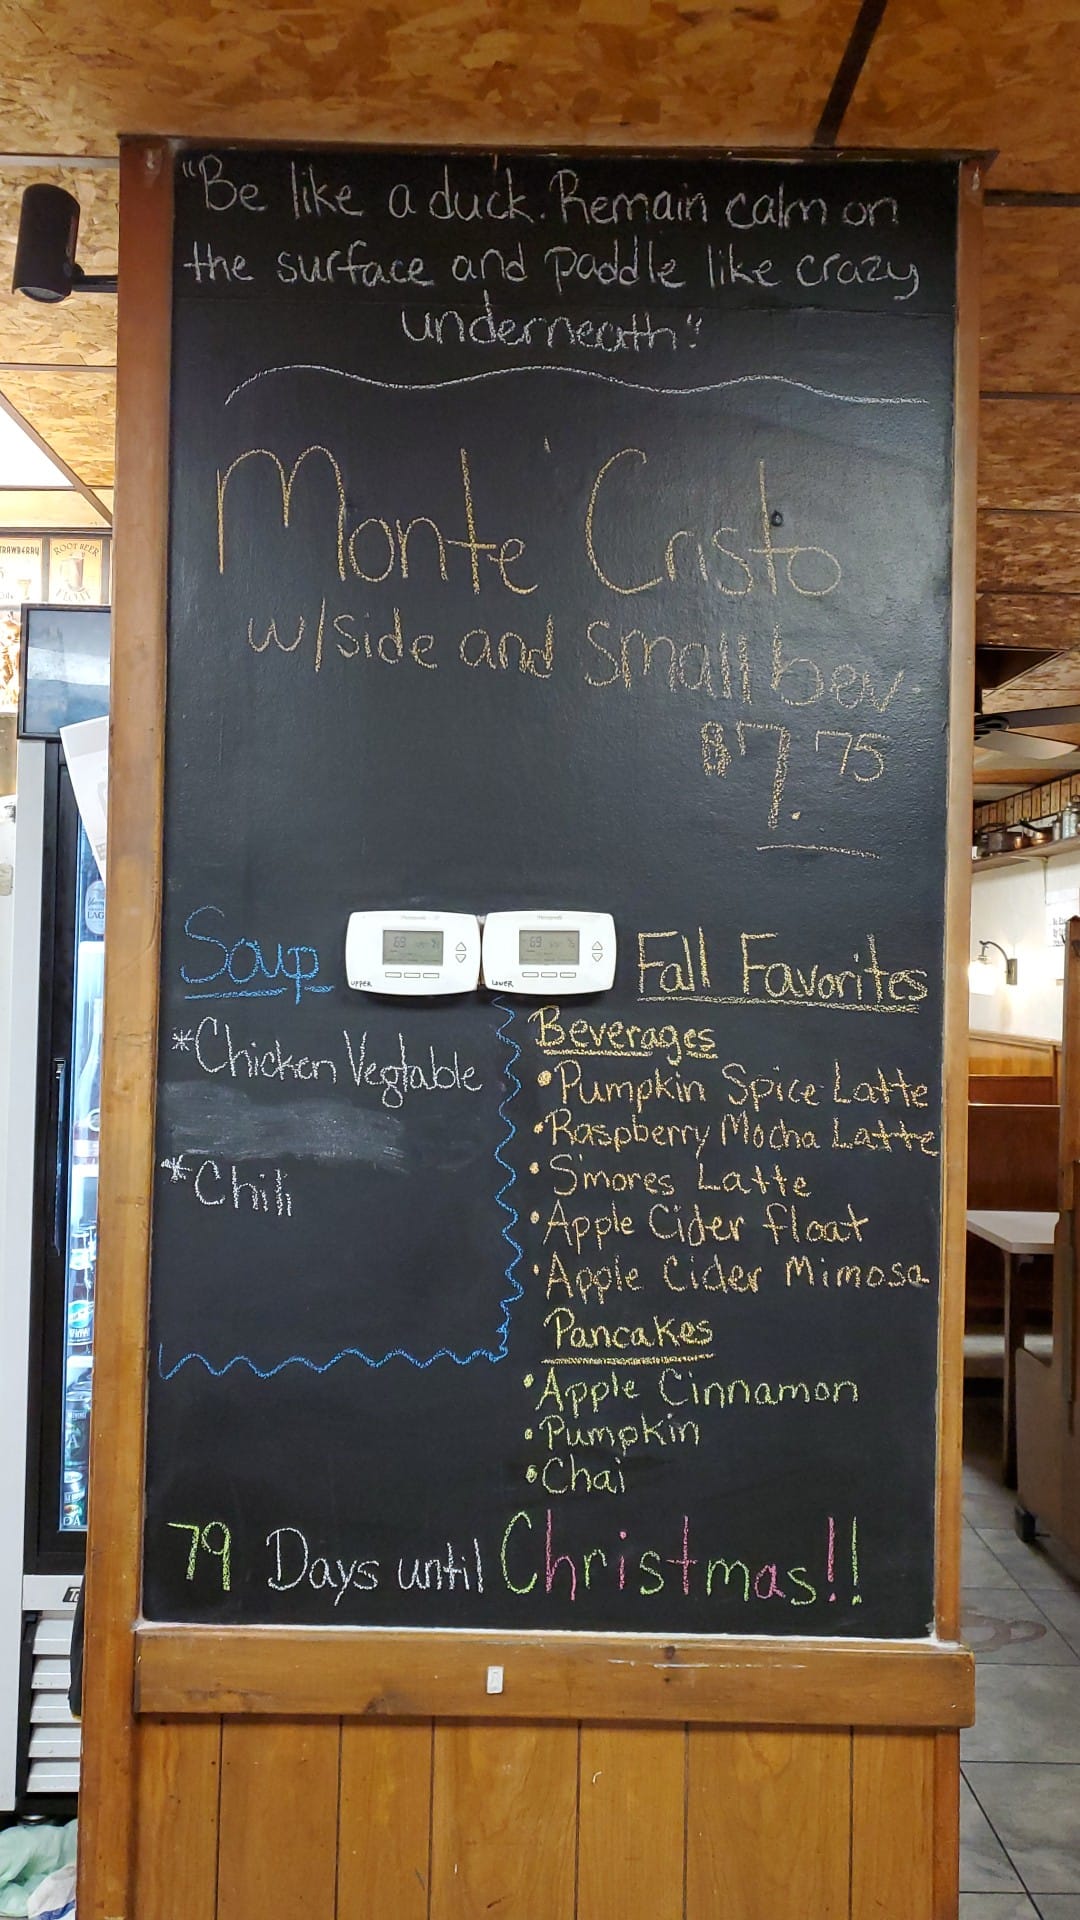 "Be like a duck. Remain calm on
the surface and paddle like crazy
underneath."
Monte Cristo
w/side and small bev.
$7.75
Soup
*Chicken Vegtable
*Chili
UPPER
LOWER
69
69
Fall Favorites
Beverages
•Pumpkin Spice Latte
•Raspberry Mocha Latte
•S'mores Latte
•Apple Cider float
•Apple Cider Mimosa
Pancakes
•Apple Cinnamon
•Pumpkin
•Chai
79 Days until Christmas!!
ROOT BEER
FLOAT
LAG